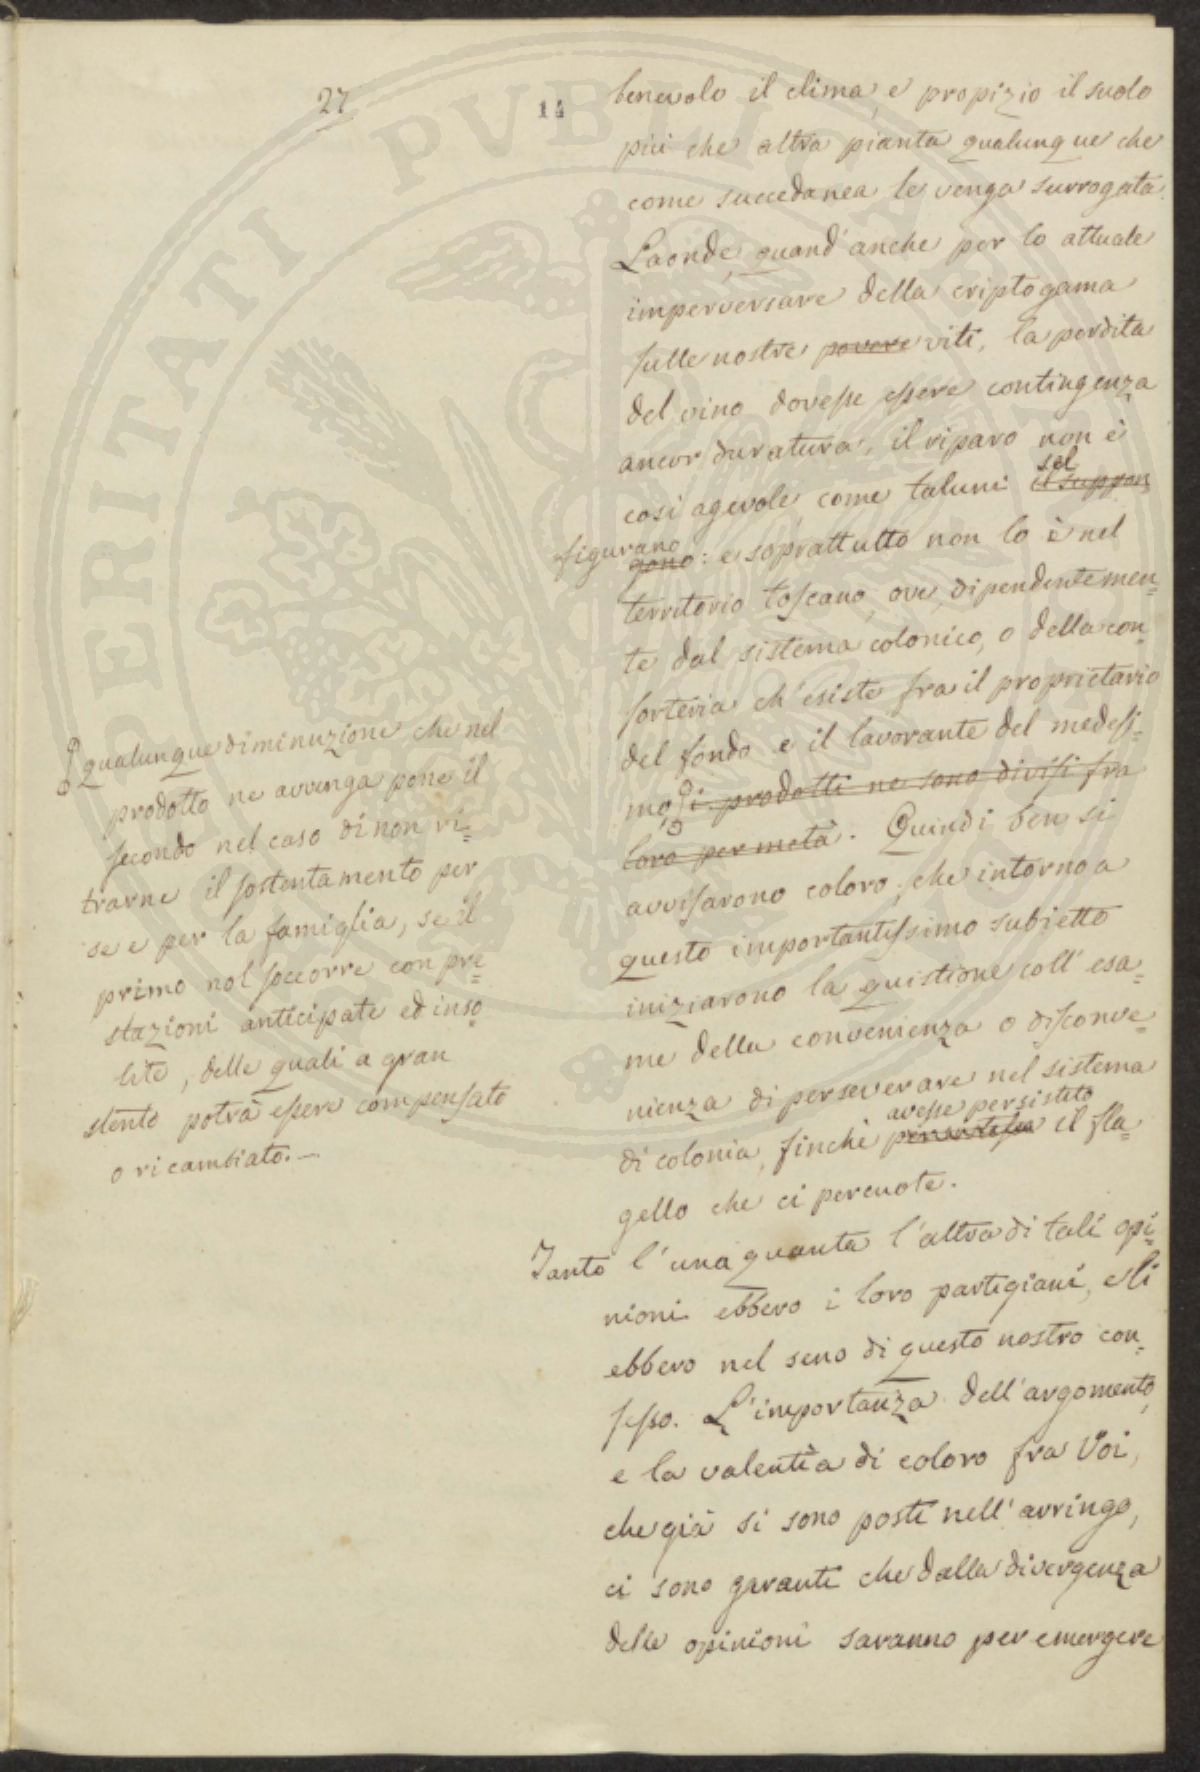 27
14
benevolo il clima, e propizio il suolo
più che altra pianta qualunque che
come succedanea le venga surrogata.
Laonde, quand'anche per lo attuale
imperversare della criptogama
sulle nostre povere viti, la perdita
del vino dovesse essere contingenza
ancor duratura, il riparo non è
così agevole, come taluni il suppon
sel
figurano
gono: e soprattutto non lo è nel
territorio toscano, ove, dipendentemen=
te dal sistema colonico, o della con=
sorteria ch'esiste fra il proprietario
del fondo e il lavorante del medesi=
mo, i prodotti ne sono divisi fra
loro per metà. Quindi ben si
avvisarono coloro, che intorno a
questo importantissimo subietto
iniziarono la quistione coll'esa=
me della convenienza o disconve=
nienza di perseverare nel sistema
di colonia, finchè il fla=
avesse persistito
gello che ci percuote.
Tanto l'una quanta l'altra di tali opi=
nioni ebbero i loro partigiani, e li
ebbero nel seno di questo nostro con=
sesso. L'importanza dell'argomento,
e la valentìa di coloro fra Voi,
che già si sono posti nell'arringo,
ci sono garanti che dalla divergenza
delle opinioni saranno per emergere
qualunque diminuzione che nel
prodotto ne avvenga pone il
secondo nel caso di non ri=
trarne il sostentamento per
se e per la famiglia, se il
primo nol soccorre con pre=
stazioni anticipate ed inso=
lite, delle quali a gran
stento potrà essere compensato
o ricambiato.—
PERITATI PVBLICAE